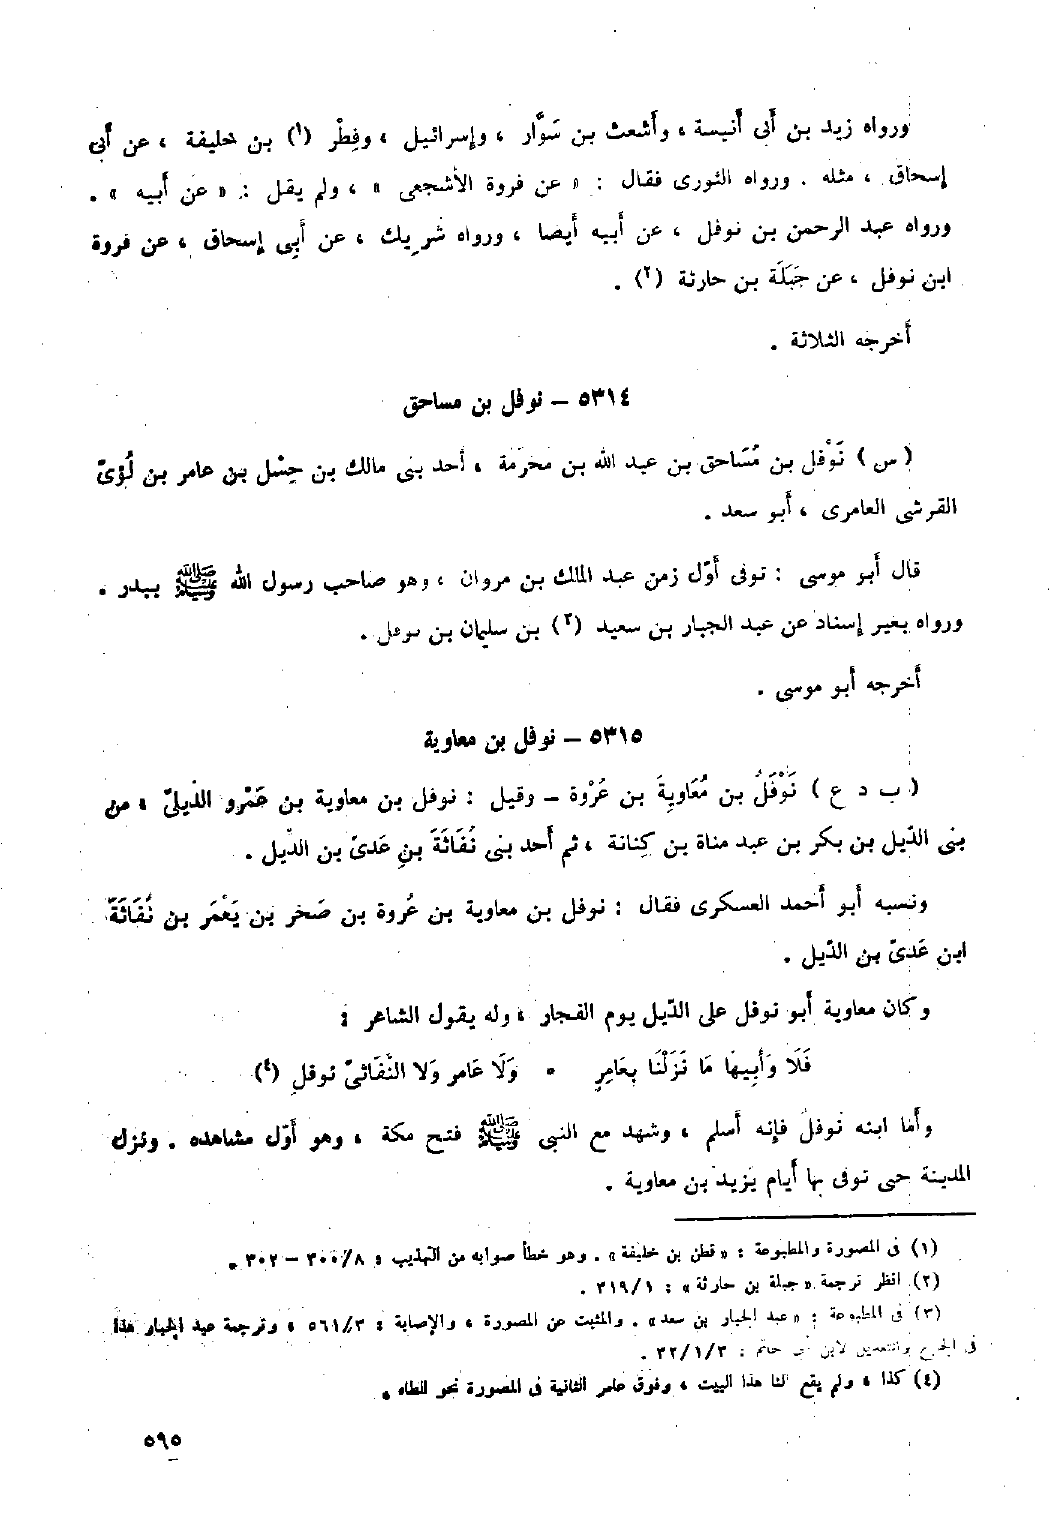 ورواه زيد بن أبى أنيسة ، وأشعث بن سَوَّار ، وإسرائيل ، وفِطْر (١) بن خليفة ، عن أبى
إسحاق ، مثله . ورواه الثورى فقال : « عن فروة الأشجعى » ، ولم يقل : « عن أبيه » .
ورواه عبد الرحمن بن نوفل ، عن أبيه أيضا ، ورواه شريك ، عن أبى إسحاق ، عن فروة
ابن نوفل ، عن جَبَلَة بن حارثة (٢) .
أخرجه الثلاثة .
٥٣١٤ – نوفل بن مساحق
( س ) نَوْفل بن مُسَاحق بن عبد الله بن مخرَمة ، أحد بنى مالك بن حِسْل بن عامر بن لُؤىّ
القرشى العامرى ، أبو سعد .
قال أبو موسى : توفى أوّل زمن عبد الملك بن مروان ، وهو صاحب رسول الله ﷺ ببدر .
ورواه بغير إسناد عن عبد الجبار بن سعيد (٣) بن سليمان بن نوفل .
أخرجه أبو موسى .
٥٣١٥ – نوفل بن معاوية
( ب د ع ) نَوْفَلُ بن مُعَاوِيةَ بن عُرْوة – وقيل : نوفل بن معاوية بن عَمْرو الدّيلىّ ، من
بنى الدّيل بن بكر بن عبد مناة بن كِنانة ، ثم أحد بنى نُفَاثَةَ بنِ عَدىّ بن الدّيل .
ونسبه أبو أحمد العسكرى فقال : نوفل بن معاوية بن عُروة بن صَخر بن يَعْمَر بن نُفَاثَةَ
ابن عَدىّ بن الدّيل .
وكان معاوية أبو نوفل على الدّيل يوم الفجار ، وله يقول الشاعر :
فَلَا وَأَبِيهَا مَا نَزَلْنَا بِعَامِرٍ • وَلَا عَامر وَلا النُّفَاثىّ نوفلِ (٤)
وأما ابنه نوفل فإنه أسلم ، وشهد مع النبى ﷺ فتح مكة ، وهو أوّل مشاهده . ونزل
المدينة حتى توفى بها أيام يزيد بن معاوية .
(١) فى المصورة والمطبوعة : « قطن بن خليفة » . وهو خطأ صوابه من التهذيب : ٣٠٠/٨ – ٣٠٢ .
(٢) انظر ترجمة « جبلة بن حارثة » : ٣١٩/١ .
(٣) فى المطبوعة : « عبد الجبار بن سعد » . والمثبت عن المصورة ، والإصابة : ٥٦١/٣ ، وترجمة عبد الجبار هذا
فى الجرح والتعديل لابن أبى حاتم : ٣٢/١/٣ .
(٤) كذا ، ولم يقع لنا هذا البيت ، وفوق عامر الثانية فى المصورة نحو الطاء .
٥٩٥